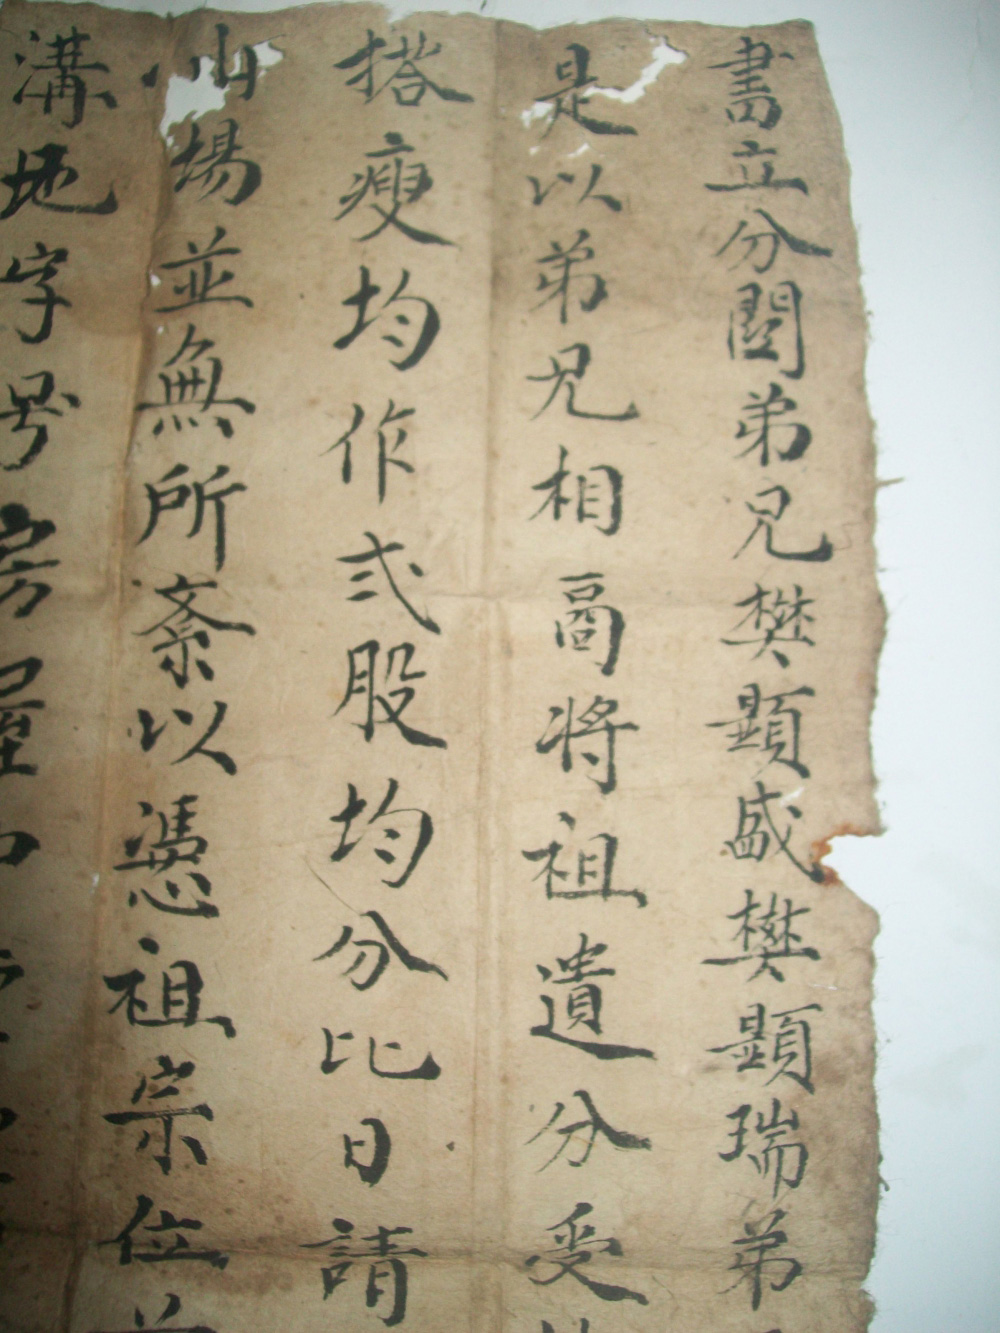 書立分關弟兄樊顕盛樊顕瑞弟
是以弟兄相啇将祖遺分受
搭瘦均作弍股均分比日請
山場並無所紊以憑祖宗位
溝地字号房屋